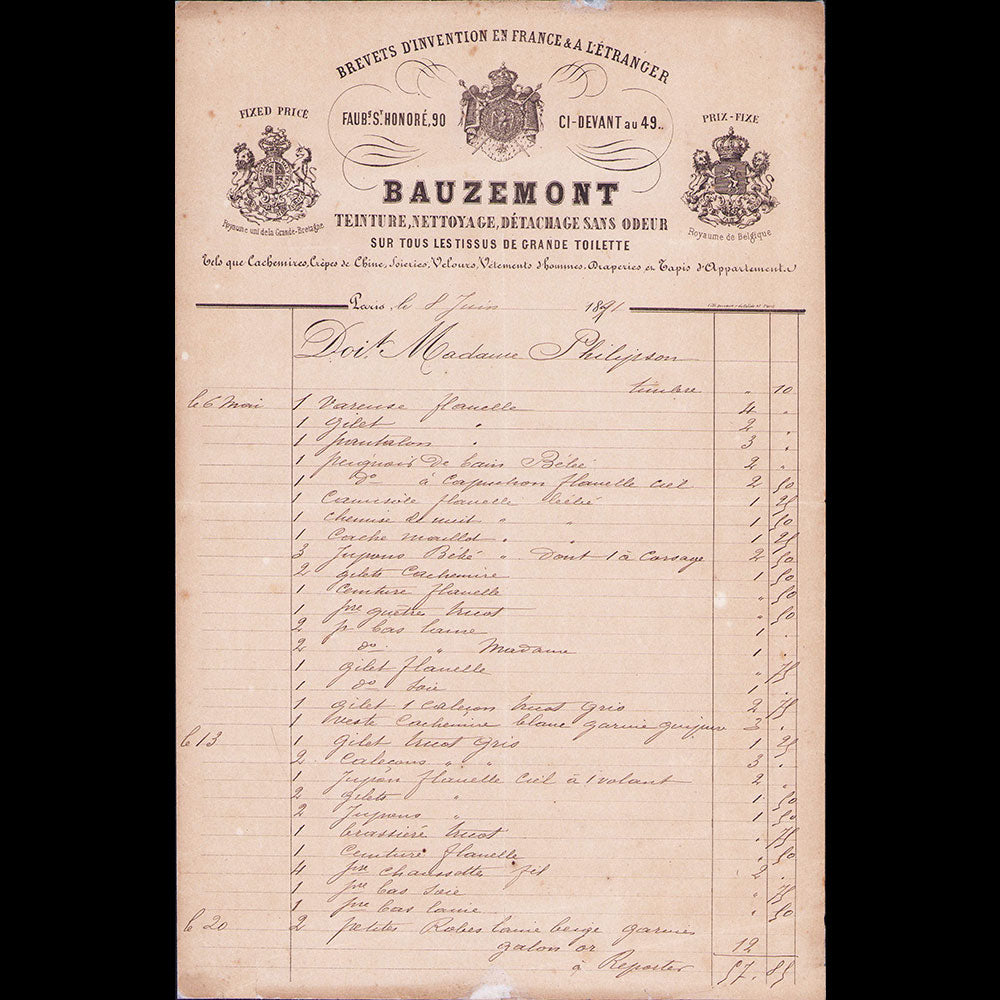 BREVETS D'INVENTION EN FRANCE & A L'ÉTRANGER
FIXED PRICE
FAUBG. ST. HONORÉ, 90
CI-DEVANT au 49..
PRIX-FIXE
BAUZEMONT
Royaume uni de la Grande-Bretagne
Royaume de Belgique
TEINTURE, NETTOYAGE, DÉTACHAGE SANS ODEUR
SUR TOUS LES TISSUS DE GRANDE TOILETTE
Tels que Cachemires, Crêpes de Chine, Soieries, Velours, Vêtements d'hommes, Draperies et Tapis d'Appartement.
Paris, le 8 Juin 1891
Doit Madame Philipson
timbre " 10
le 6 Mai 1 Vareuse flanelle 4 "
1 gilet " 2 "
1 pantalon " 3 "
1 peignoir de bain Bébé 2 "
1 do à Capuchon flanelle ciel 2 50
1 Camisole flanelle bébé 1 25
1 chemise de nuit " " 1 50
1 Cache maillot " " 1 25
3 Jupons Bébé " Dont 1 à Corsage 2 50
2 gilets Cachemire 1 50
1 Ceinture flanelle " 50
1 pre guêtres tricot " 50
2 p bas laine 1 "
2 do " Madame 1 "
1 gilet flanelle " 75
1 do soie 1 "
1 gilet 1 Caleçon tricot gris 2 75
1 Veste Cachemire blanc garnie guipure 3 "
le 13 1 gilet tricot gris 1 25
2 Caleçons " " 3 "
1 Jupon flanelle ciel à 1 volant 2 "
2 gilets " 1 50
2 Jupons " 1 50
1 brassière tricot " 75
1 Ceinture flanelle " 50
4 pre chaussettes fil 2 "
1 pre bas soie " 75
1 pre bas laine " 50
le 20 2 petites Robes laine beige garnies
galon or 12
à Reporter 57. 85